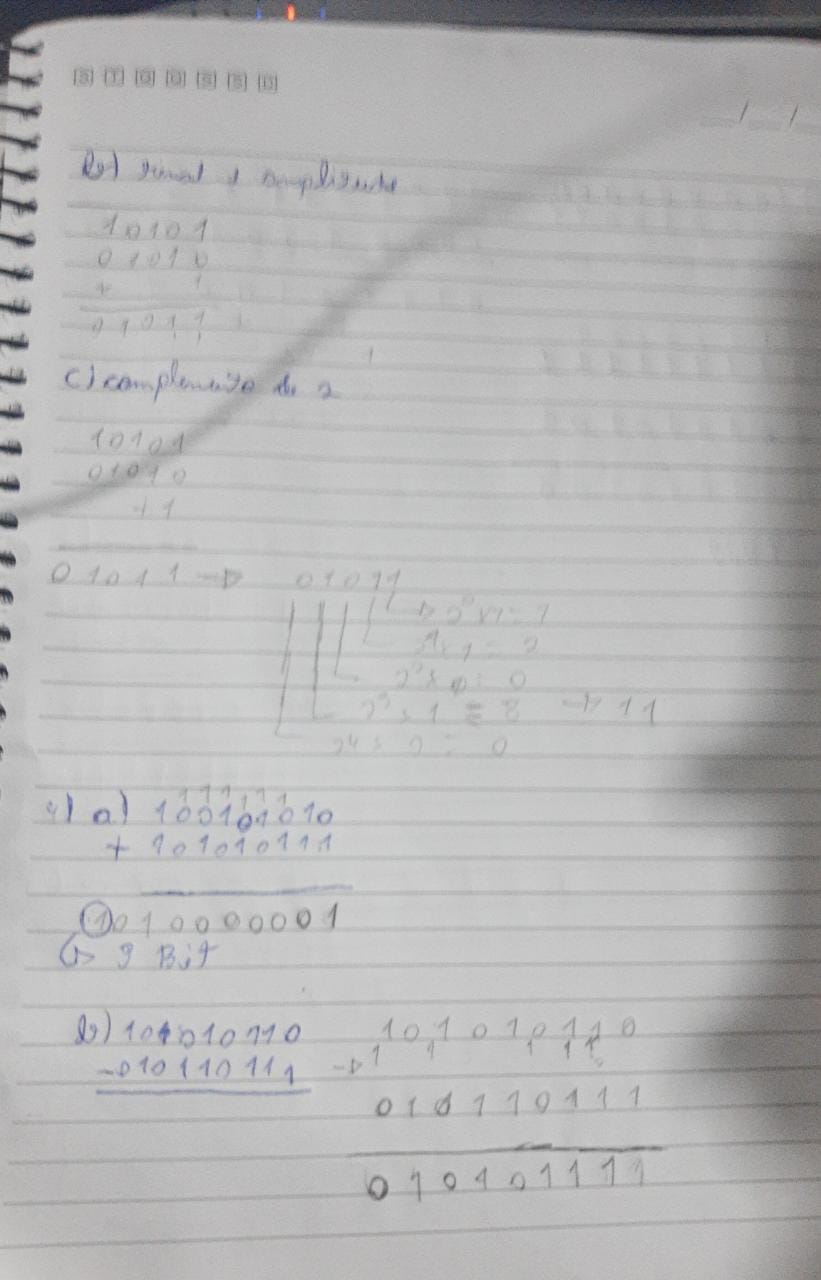 S T Q Q S S D
/ /
b) sinal e amplitude
10101
01010
+ 1
01011
c) complemento de 2
10101
01010
+1
01011 → 01011
→ 2⁰x1 = 1
2¹x1 = 2
2²x0 = 0
2³x1 = 8 → 11
2⁴x0 = 0
a) 100101010
+ 101010111
1010000001
↳ 9 Bit
b) 101010110
-010110111 →
101010110
010110111
010101111